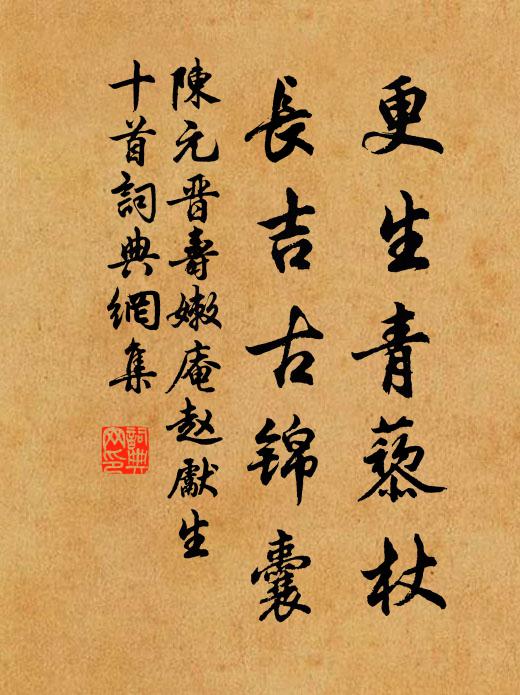 更生青藜杖
長吉古錦囊
陳元晋壽嫩庵赵獻生
十首詞典網集
詞典网印